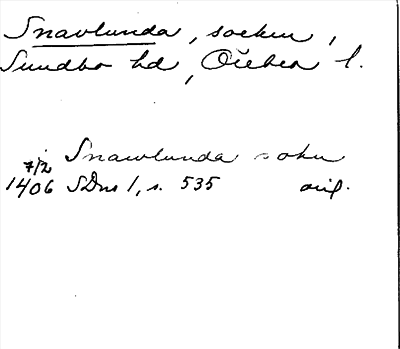 Snavlunda, socken,
Sundbo hd, Örebro l.
i Snawlunda sokn
7/2
1406 SDns 1, s. 535 orig.